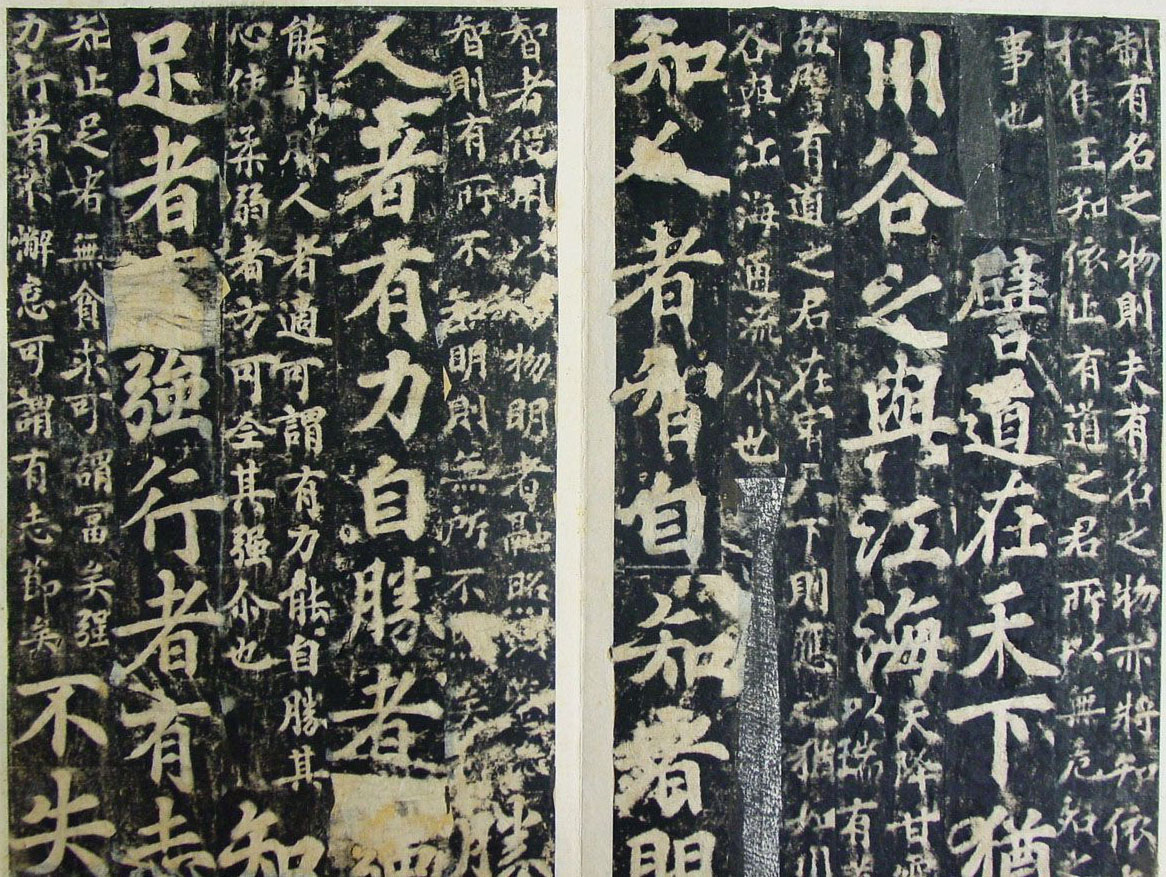 制有名之物則夫有名之物亦將知依
侯王知依止有道之君所以無危知之
事也
譬道在天下猶
川谷之與江海
天降甘
以瑞有
故譬有道之君在宥天下則應猶如川
谷與江海通流尒也
知人者智自知者明
智者役用以物明者融照
智則有所不知明則無所不
勝
人者有力自勝者強
能制勝人者適可謂有力能自勝其
心使柔弱者方可全其强尒也
知
足者強行者有志
知止足者無貪求可謂冨矣强
力行者不懈怠可謂有志節矣
不失